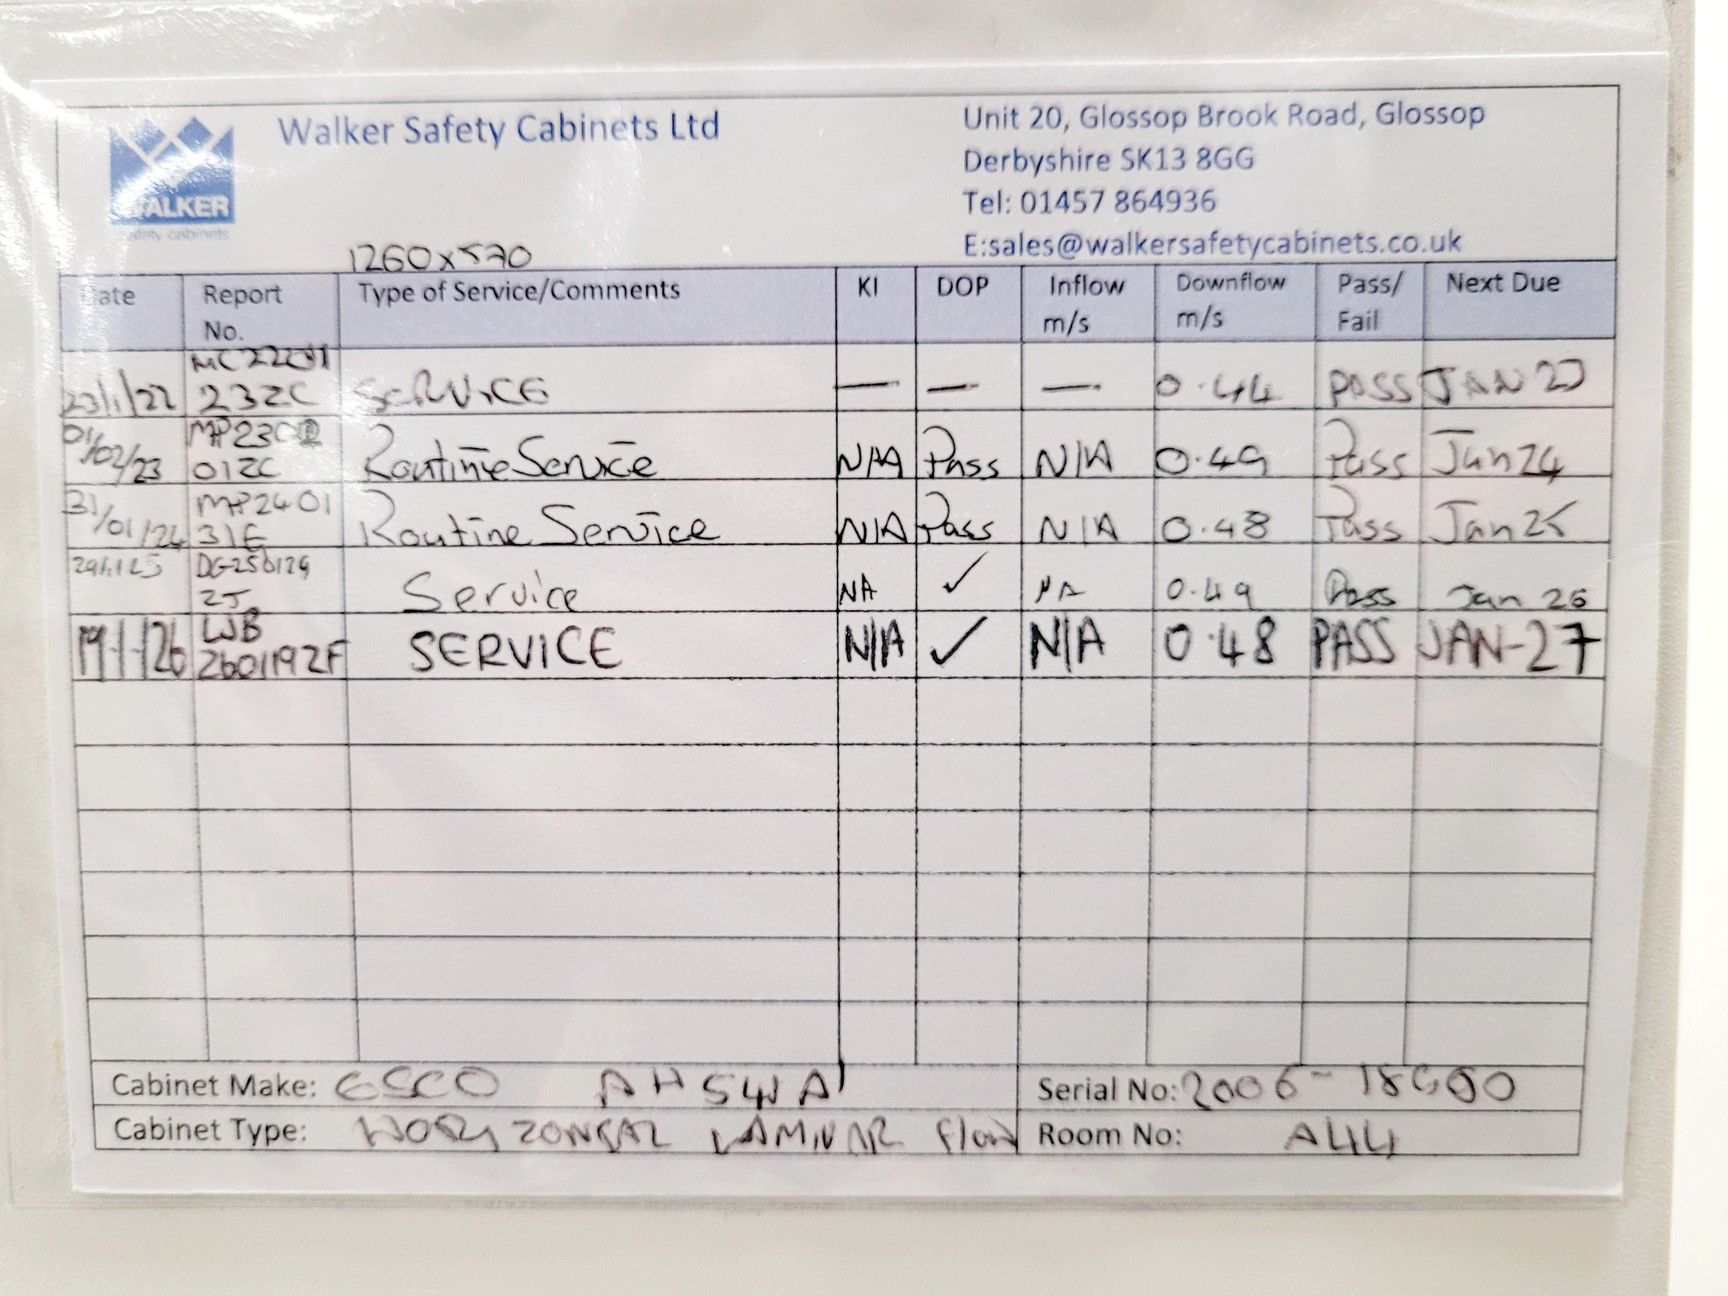 Walker Safety Cabinets Ltd
WALKER
safety cabinets
Unit 20, Glossop Brook Road, Glossop
Derbyshire SK13 8GG
Tel: 01457 864936
E:sales@walkersafetycabinets.co.uk
1260x570
Date Report No. Type of Service/Comments KI DOP Inflow m/s Downflow m/s Pass/ Fail Next Due
23/1/22 232C SERVICE — — — 0.44 PASS JAN 23
01/02/23 012C Routine Service N/A Pass N/A 0.49 Pass Jan 24
31/01/24 MP2401 31E Routine Service N/A Pass N/A 0.48 Pass Jan 25
29/1/25 DG250129 2J Service NA ✓ NA 0.49 Pass Jan 26
19-1-26 WB 2601192F SERVICE N/A ✓ N/A 0.48 PASS JAN-27
Cabinet Make: ESCO Serial No: 2006-
Cabinet Type: HORIZONTAL LAMINAR flow Room No: A44